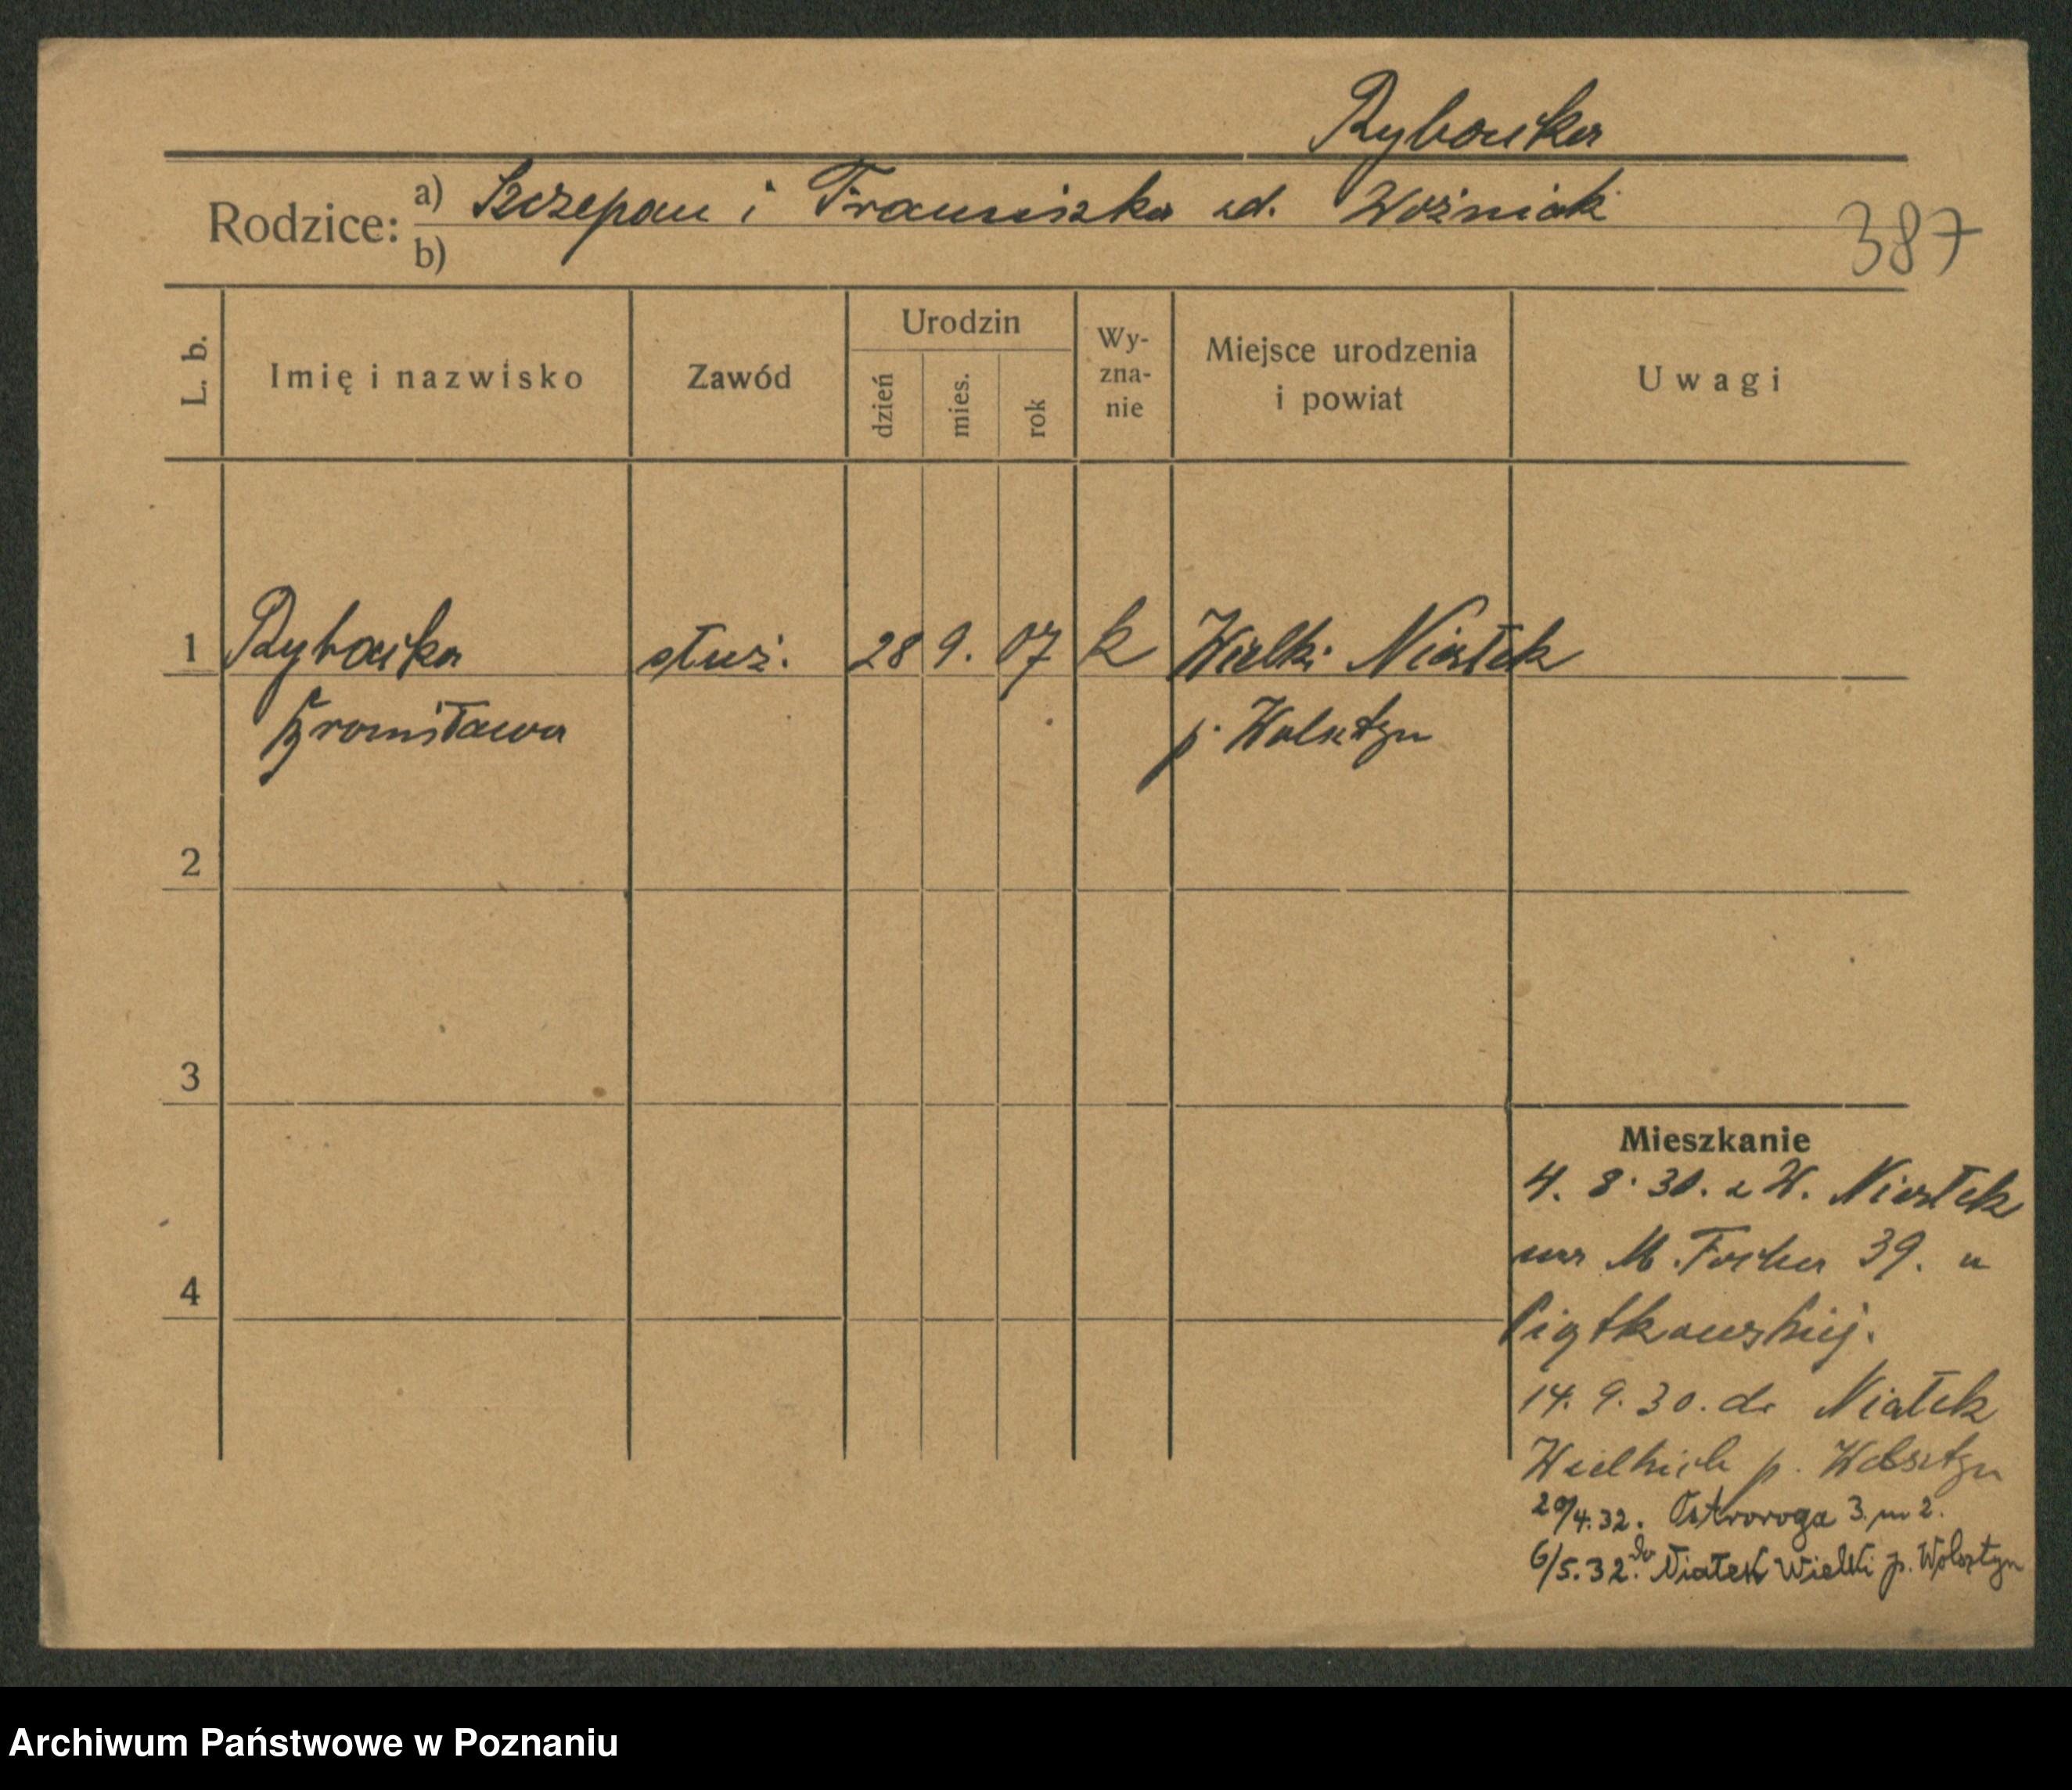 Rybacka
Rodzice: a) Szczepan i Franciszka zd. Woźniak
b)
387
L. b.
Imię i nazwisko
Zawód
Urodzin
dzień
mies.
rok
Wy-
zna-
nie
Miejsce urodzenia
i powiat
Uwagi
1 Rybacka służ. 28 9. 07 k Wielki Niałek
Bronisława p. Wolsztyn
2
3
Mieszkanie
4. 8. 30. z W. Niałek
na M. Focha 39. u
4
Piątkowskiej.
14. 9. 30. do Niałek
Wielkich p. Wolsztyn
20/4.32. Ostroroga 3. m 2.
6/5.32. do Niałek Wielki p. Wolsztyn
Archiwum Państwowe w Poznaniu